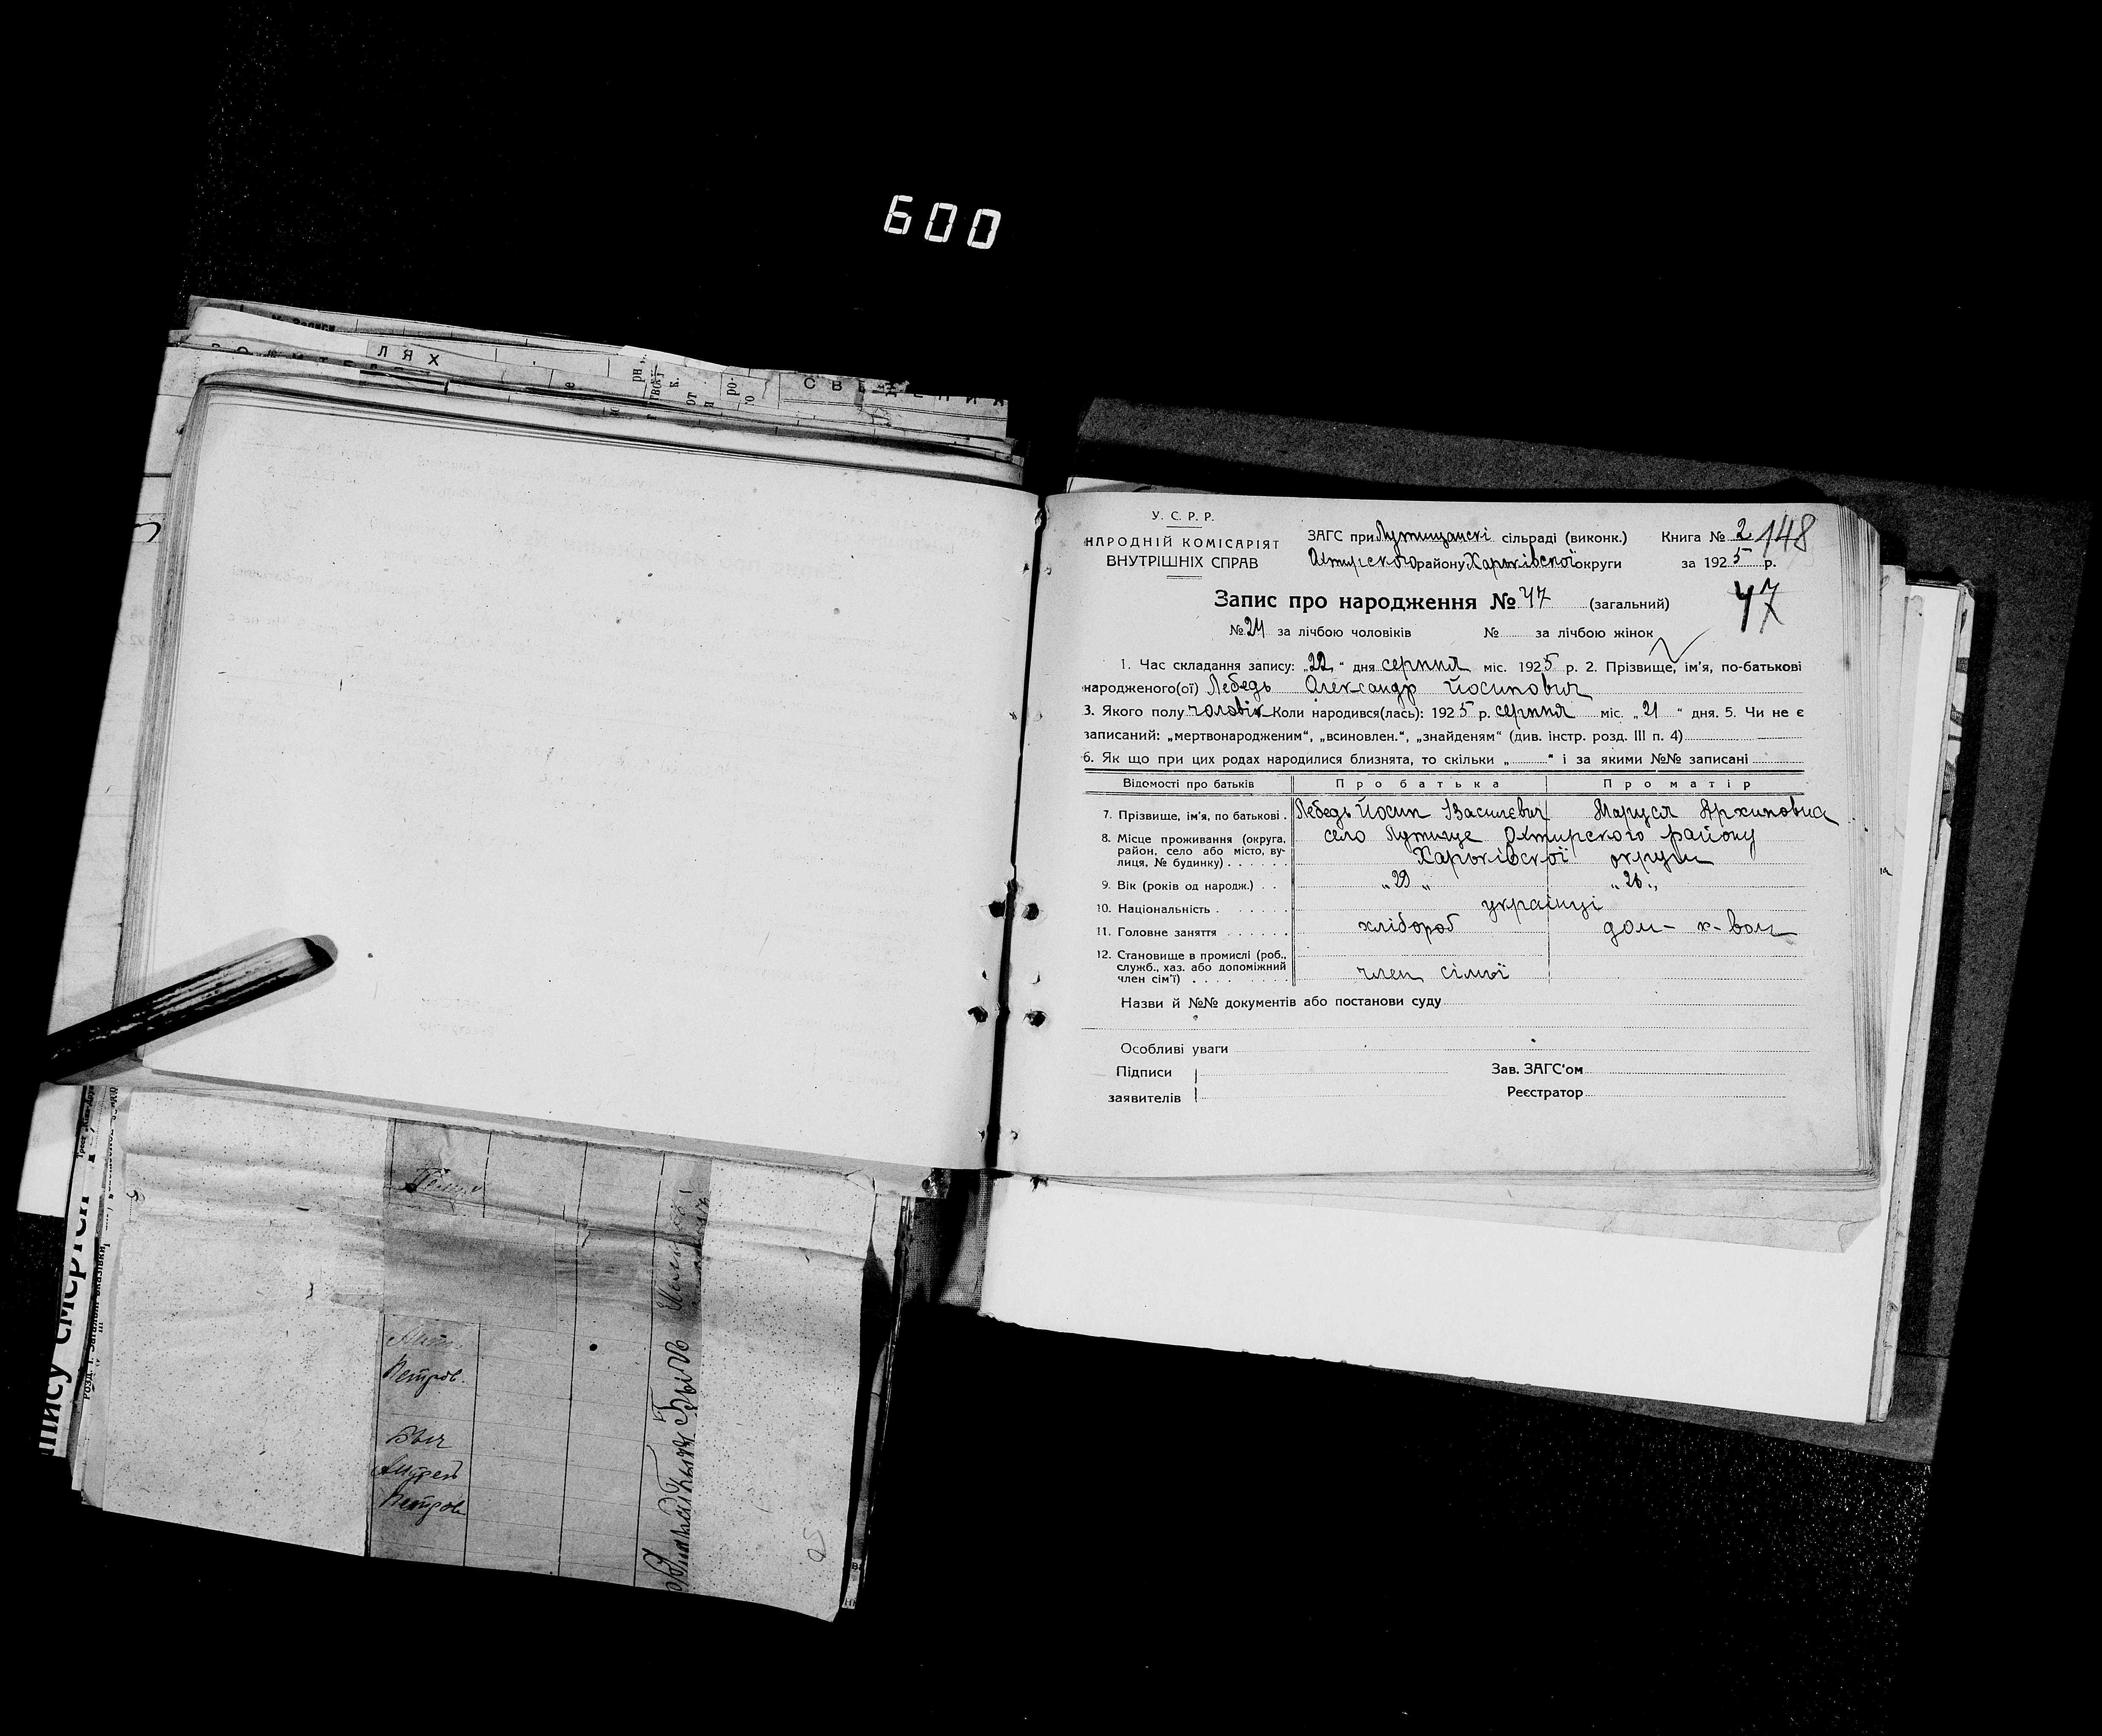 600
ЛЯХ
У. С. Р. Р.
НАРОДНІЙ КОМІСАРІЯТ
ВНУТРІШНІХ СПРАВ
ЗАГС при Лутищанскі сільраді (виконк.) Книга № 2 148
Охтирского району Харьківскої округи за 1925 р.
Запис про народження № 47 (загальний) 47
№ 24 за лічбою чоловіків № за лічбою жінок
1. Час складання запису: „22“ дня серпня міс. 1925 р. 2. Прізвище, ім'я, по-батькові
народженого(ої) Лебедь Олександр Йосипович
3. Якого полу чоловік Коли народився(лась): 1925 р. серпня міс. „21“ дня. 5. Чи не є
записаний: „мертвонародженим“, „всиновлен.“, „знайденям“ (див. інстр. розд. III п. 4)
6. Як що при цих родах народилися близнята, то скільки „ “ і за якими №№ записані
Відомості про батьків Про батька Про матір
7. Прізвище, ім'я, по батькові . Лебедь Йосип Василєвич Маруся Архиповна
8. Місце проживання (округа, село Лутище Охтирского району
район, село або місто, ву-
лиця, № будинку) . . . . . Харьківскої округи
9. Вік (років од народж.) . . „29„ „26„
10. Національність . . . . . . українці
11. Головне заняття . . . . . . хлібороб дом- х-вом
12. Становище в промислі (роб.,
служб., хаз. або допоміжний
член сім'ї) . . . . . . . . член сімьї
Назви й №№ документів або постанови суду
Особливі уваги
Підписи Зав. ЗАГС'ом
заявителів Реєстратор
Петров.
Андрей
Петров